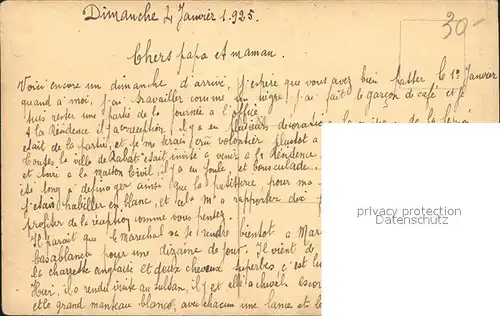 Dimanche 4 Janvier 1.925.
30-
Chers papa et maman.
Voici encore un dimanche d'arrivé, j'espère que vous avez bien passer le 1er Janvier
quand a moi, j'ai travailler comme un nègre j'ai fait le garçon de café et je
suis rester une partie de la journée a l'office
A la Résidence il y a réception, il y a eu plusieurs décorations
était de la partie, et je me serai cru volontier plustot a
Toutes la ville de Rabat était invité a venir a la Résidence
et boire a la maison Civil il y a eu foule et bousculade.
été long a ainsi que la pour ma
j'étais habiller en blanc, et cela m'a rapporter dix f
profiter de la réception comme vous pensez.
Il parait que le Marechal va se rendre bientot a Mar
Casablanca pour une dizaine de jour. Il vient de
et charrette anglaise et deux chevaux superbes c'est lu
Hier, il a rendu visite au Sultan, il y est allé a cheval escor
et le grand manteau blanc, avec chacun une lance et le
privacy protection
Datenschutz